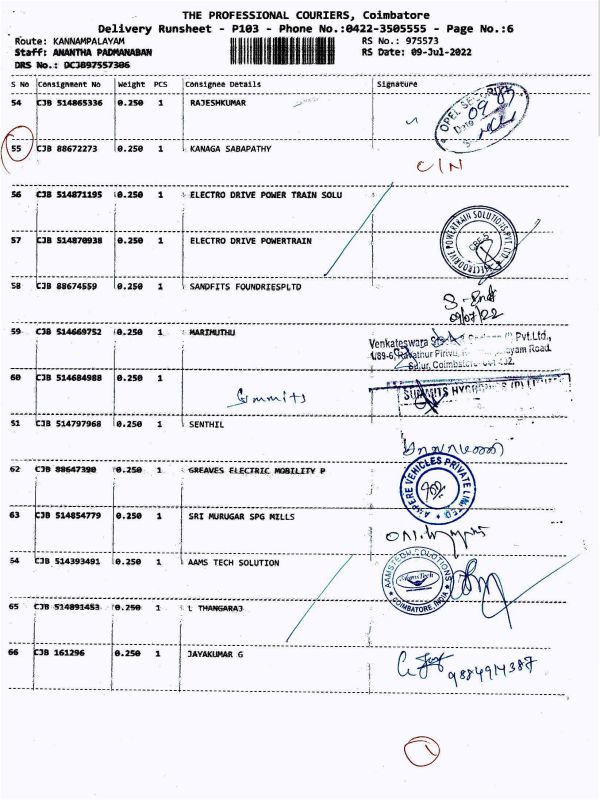 THE PROFESSIONAL COURIERS, Coimbatore
Delivery Runsheet - P103 - Phone No.:0422-3505555 - Page No.:6
Route: KANNAMPALAYAM RS No.: 975573
Staff: ANANTHA PADMANABAN RS Date: 09-Jul-2022
DRS No.: DCJB97557306
S No Consignment No Weight PCS Consignee Details Signature
54 CJB 514865336 0.250 1 RAJESHKUMAR
OPEL
09
Date
55 CJB 88672273 0.250 1 KANAGA SABAPATHY
C/N
56 CJB 514871195 0.250 1 ELECTRO DRIVE POWER TRAIN SOLU
57 CJB 514870938 0.250 1 ELECTRO DRIVE POWERTRAIN
ELECTRODRIVE POWERTRAIN SOLUTIONS PVT. LTD.
CBE-5
58 CJB 88674559 0.250 1 SANDFITS FOUNDRIESPLTD
09/07/22
59 CJB 514669752 0.250 1 MARIMUTHU
Venkateswara Pvt.Ltd.,
Road.
Sulur, Coimbatore
60 CJB 514684988 0.250 1
Summits
SUMMITS HYGRONICS (P) LIMITED
51 CJB 514797968 0.250 1 SENTHIL
62 CJB 88647390 0.250 1 GREAVES ELECTRIC MOBILITY P
AMPERE VEHICLES PRIVATE LIMITED
63 CJB 514854779 0.250 1 SRI MURUGAR SPG MILLS
54 CJB 514393491 0.250 1 AAMS TECH SOLUTION
AAMSTECH SOLUTIONS
AamsTech
COIMBATORE, INDIA
65 CJB 514891453 0.250 1 L THANGARAJ
66 CJB 161296 0.250 1 JAYAKUMAR G
9884914387
1